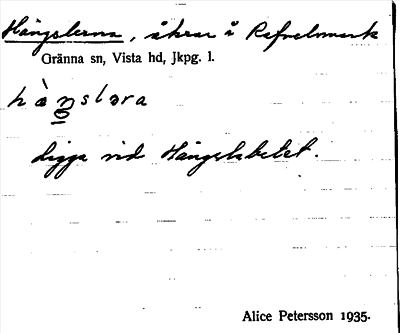 Hängslerna, åkrar å Refvelsmark
Gränna sn, Vista hd, Jkpg. l.
hàŋslәra
Ligga vid Hängslabetet.
Alice Petersson 1935.